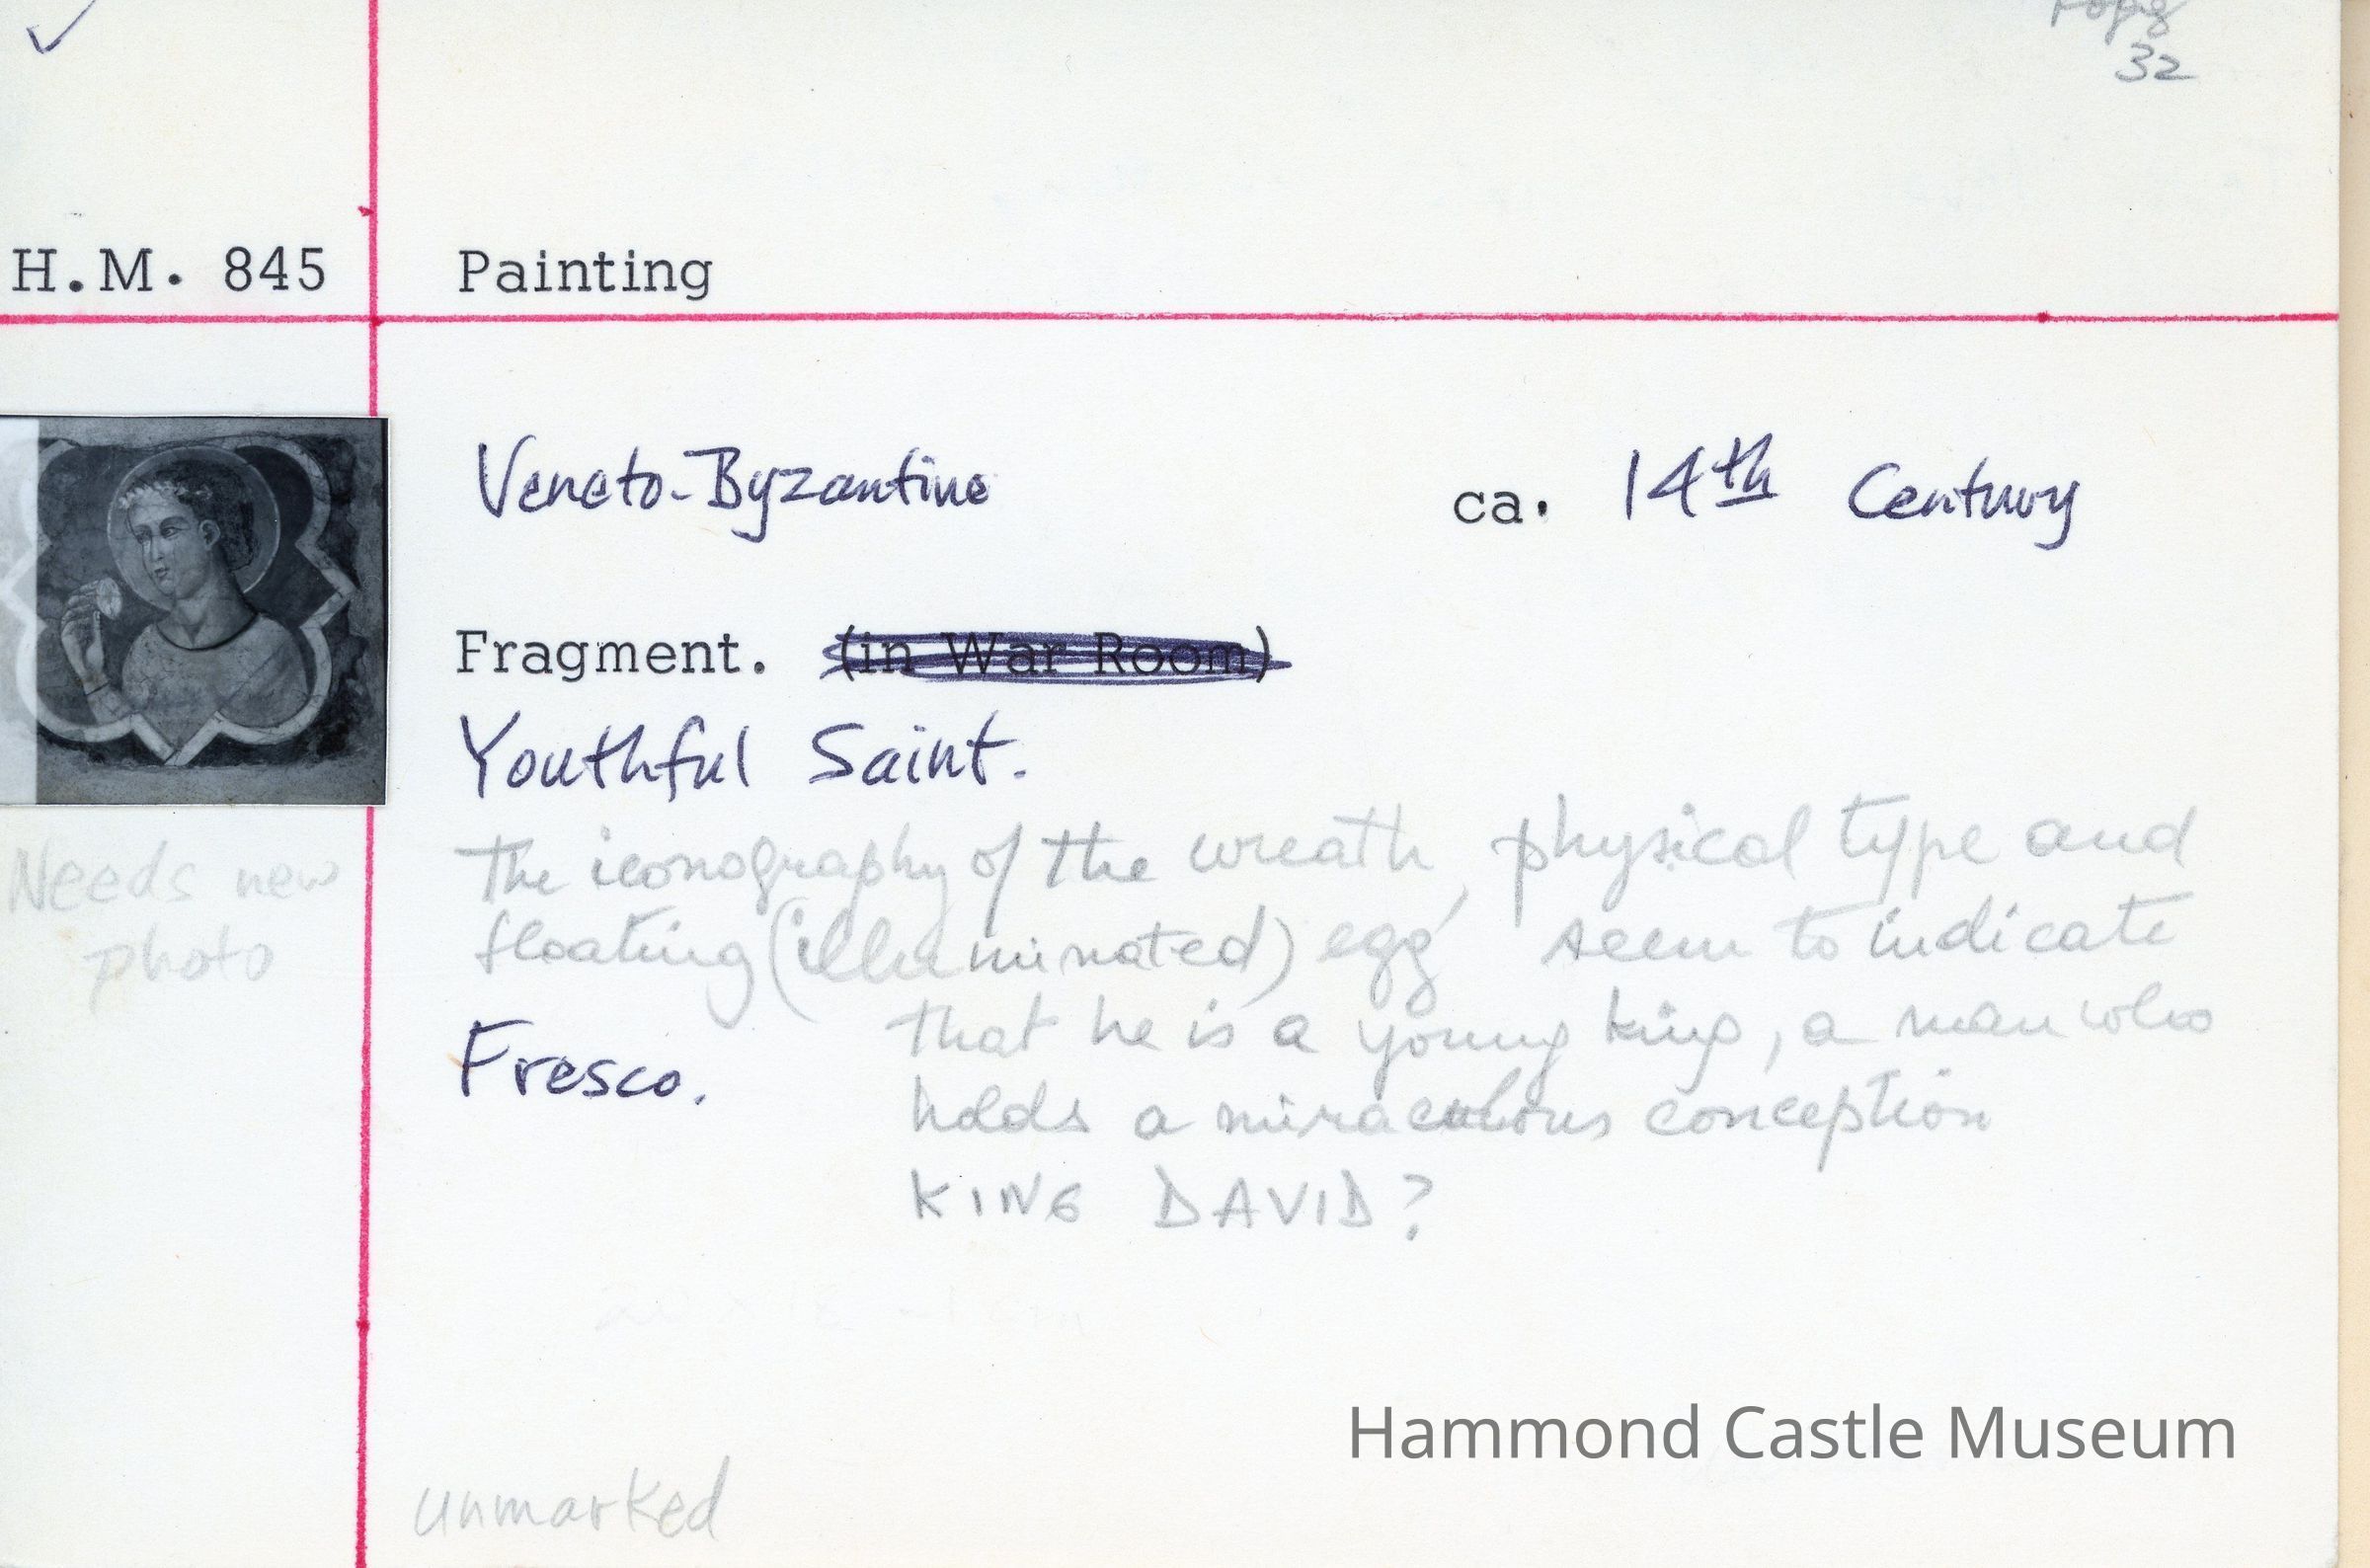 32
H.M. 845 Painting
Veneto-Byzantine ca. 14th Century
Fragment. (in War Room)
Youthful Saint.
The iconography of the wreath, physical type and
floating (illuminated) egg seem to indicate
that he is a young king, a man who
holds a miraculous conception
KING DAVID?
Needs new
photo
Fresco.
Hammond Castle Museum
unmarked